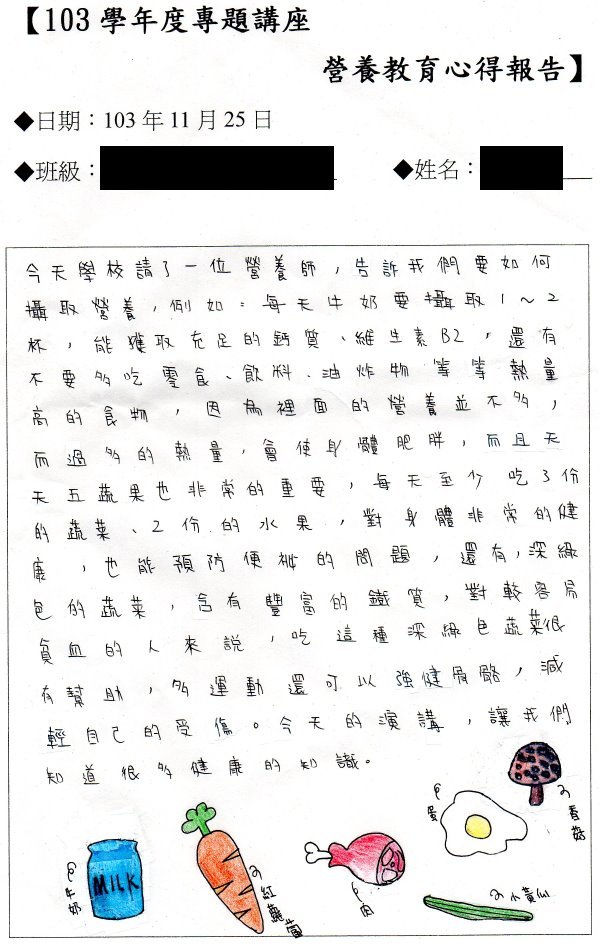 【103 學年度專題講座
營養教育心得報告】
◆日期：103 年 11 月 25 日
◆班級： ◆姓名：
今天學校請了一位營養師，告訴我們要如何
攝取營養，例如：每天牛奶要攝取1～2
杯，能獲取充足的鈣質、維生素B2，還有
不要多吃零食、飲料、油炸物等等熱量
高的食物，因為裡面的營養並不多，
而過多的熱量，會使身體肥胖，而且天
天五蔬果也非常的重要，每天至少吃3份
的蔬菜、2份的水果，對身體非常的健
康，也能預防便祕的問題，還有，深綠
色的蔬菜，含有豐富的鐵質，對較容易
貧血的人來說，吃這種深綠色蔬菜很
有幫助，多運動還可以強健骨骼，減
輕自己的受傷。今天的演講，讓我們
知道很多健康的知識。
香菇
蛋
MILK
牛奶
紅蘿蔔
肉
小黃瓜